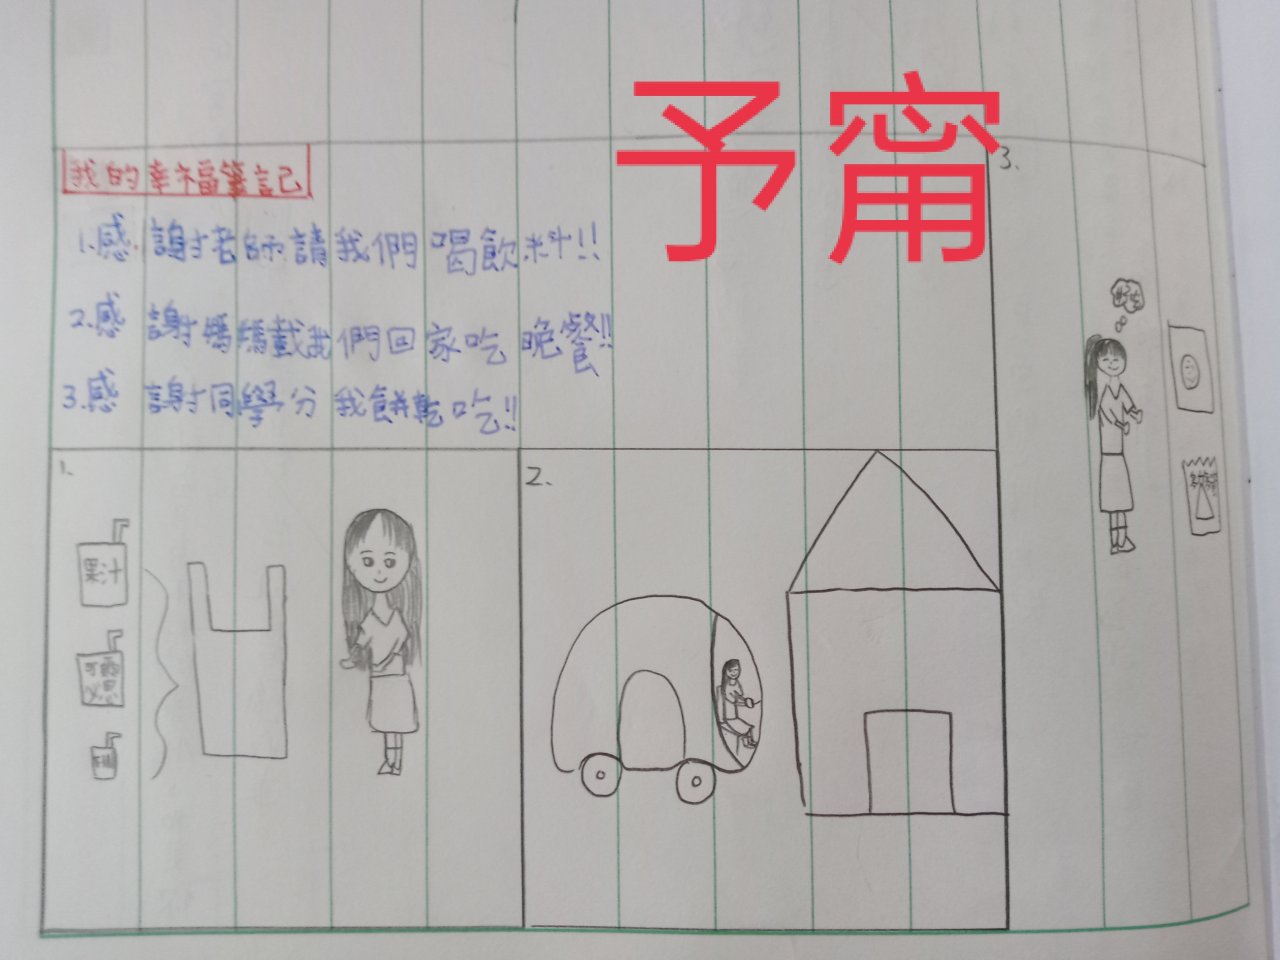 予甯
我的幸福筆記
1.感謝老師請我們喝飲料!!
2.感謝媽媽載我們回家吃晚餐!!
3.感謝同學分我餅乾吃!!
1.
果汁
2.
3.
好吃